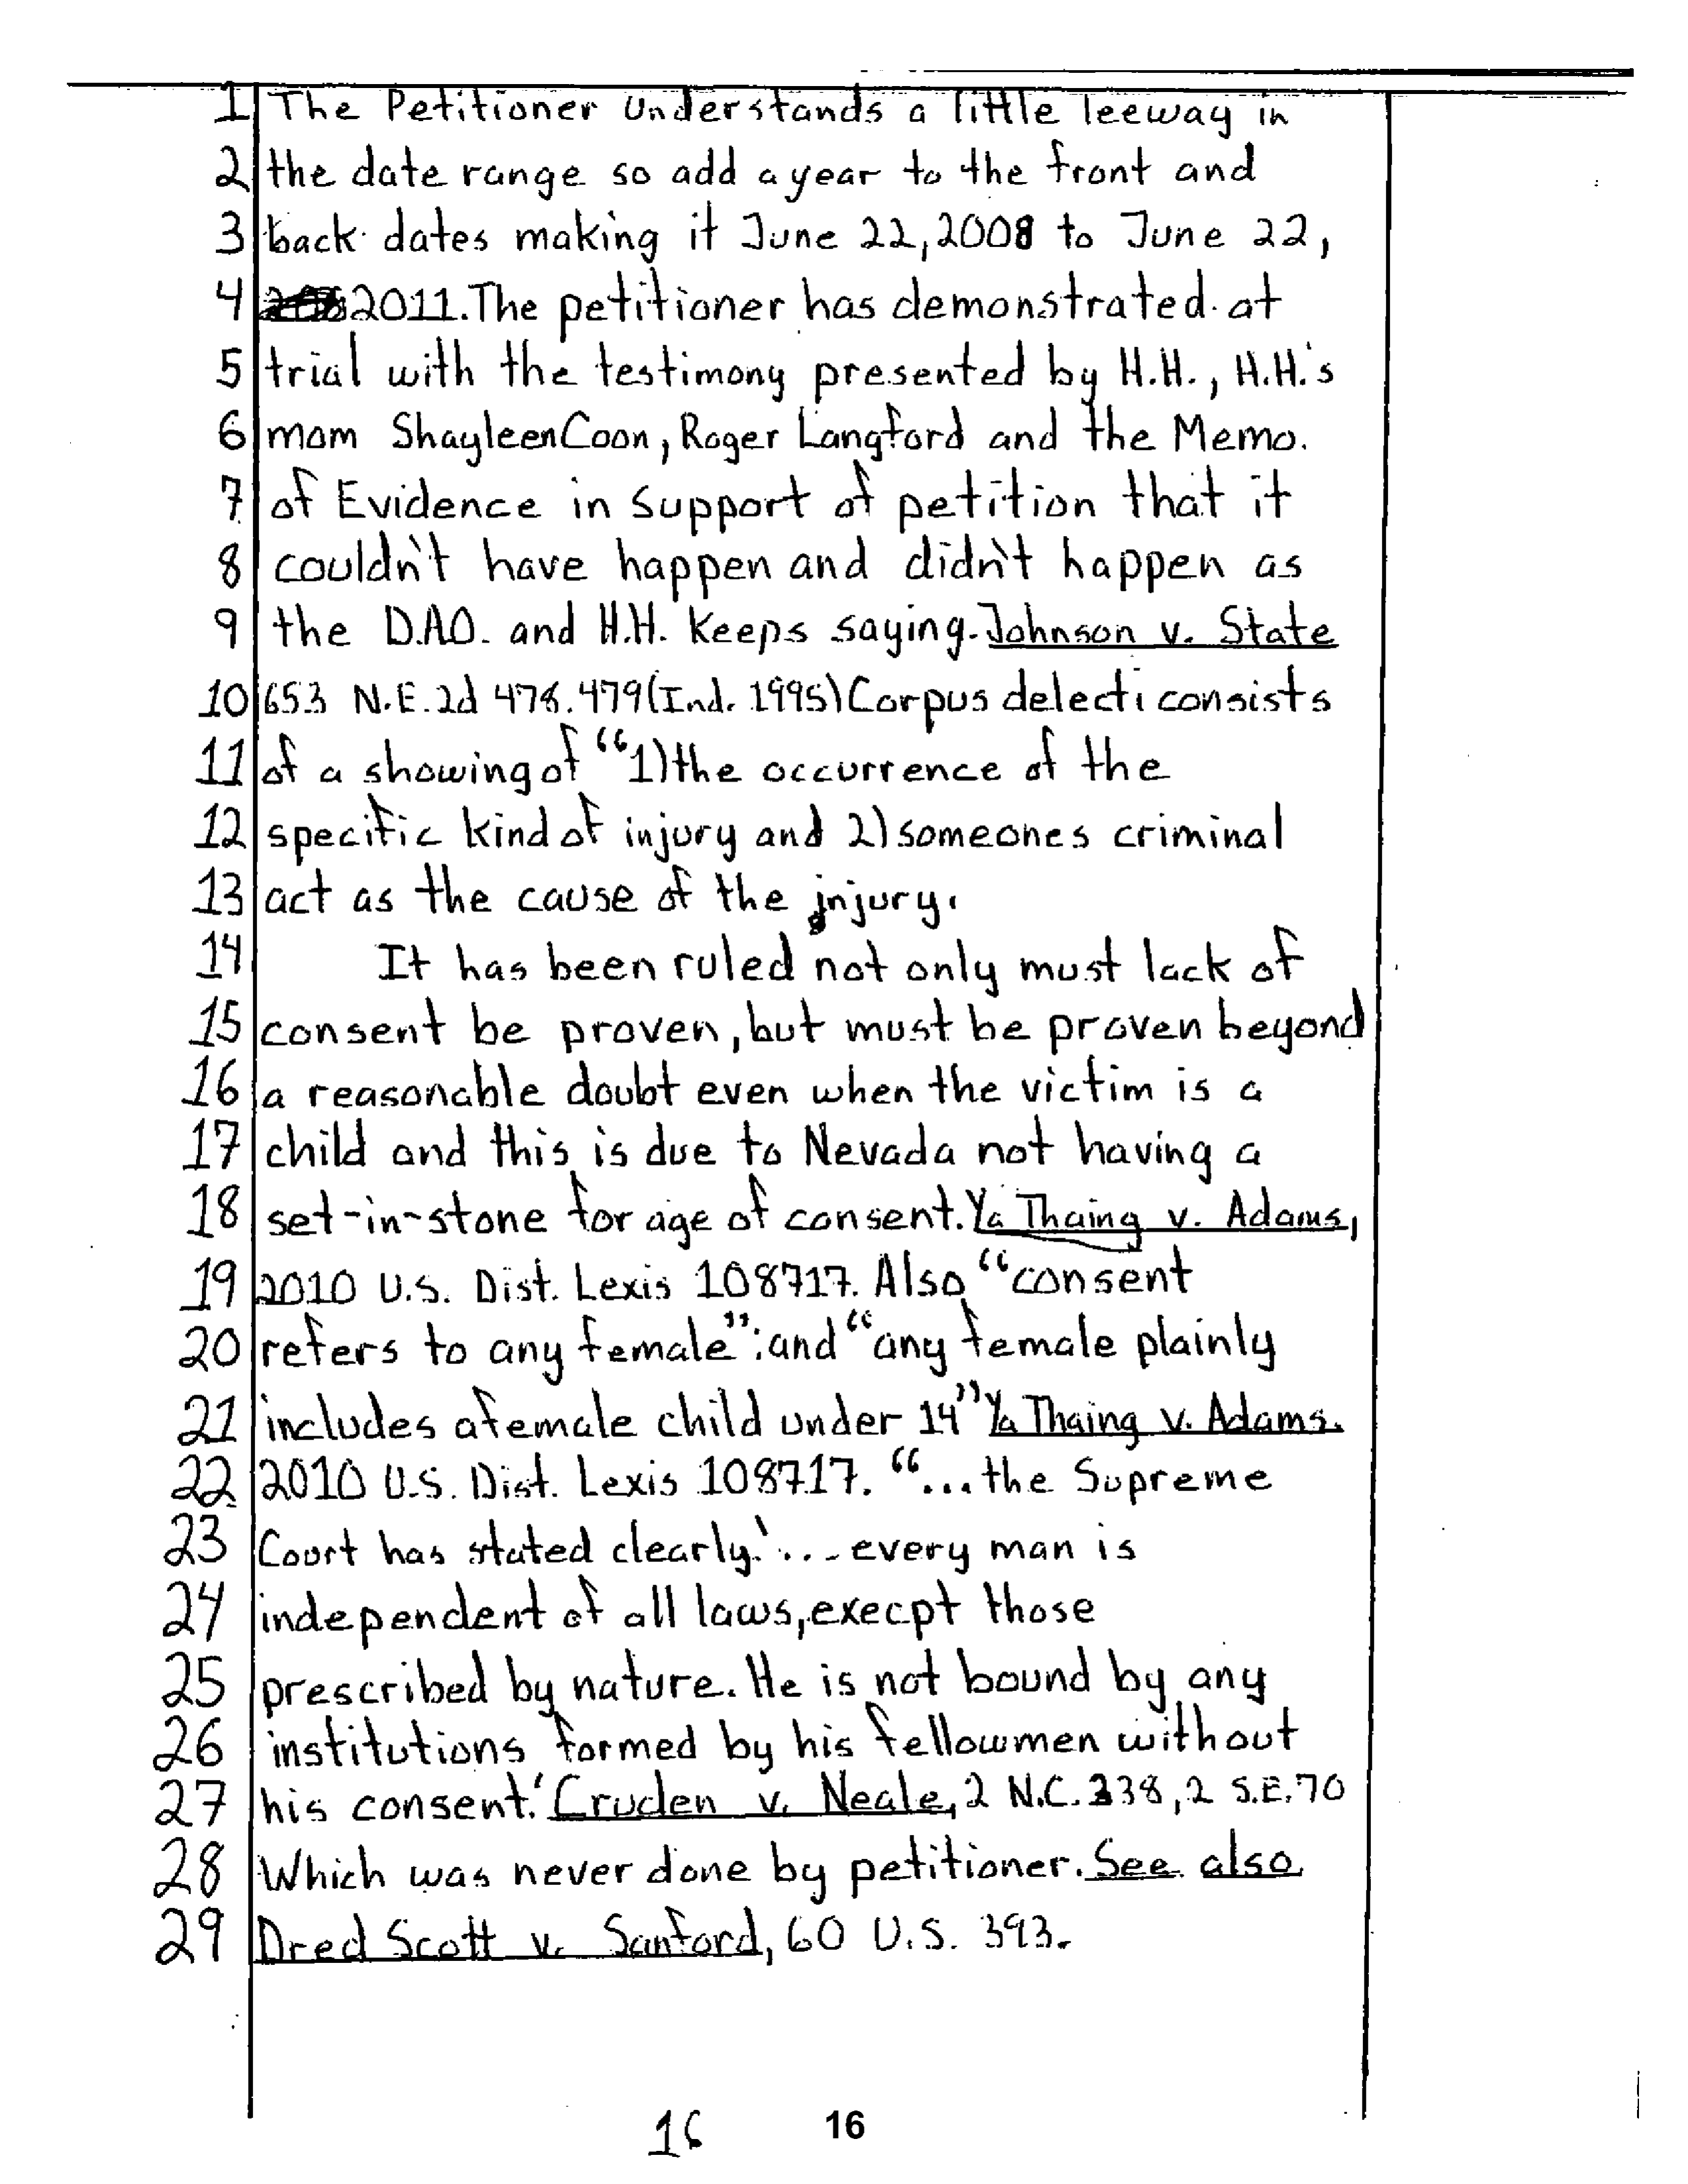 1 The Petitioner Understands a little leeway in
2 the date range so add a year to the front and
3 back dates making it June 22, 2008 to June 22,
4 2011. The petitioner has demonstrated at
5 trial with the testimony presented by H.H., H.H.'s
6 mom Shayleen Coon, Roger Langford and the Memo.
7 of Evidence in Support of petition that it
8 couldn't have happen and didn't happen as
9 the D.A.O. and H.H. Keeps saying. Johnson v. State
10 653 N.E.2d 478.479 (Ind. 1995) Corpus delecti consists
11 of a showing of “1) the occurrence of the
12 specific kind of injury and 2) someones criminal
13 act as the cause of the injury.
14 It has been ruled not only must lack of
15 consent be proven, but must be proven beyond
16 a reasonable doubt even when the victim is a
17 child and this is due to Nevada not having a
18 set-in-stone for age of consent. Ya Thaing v. Adams,
19 2010 U.S. Dist. Lexis 108717. Also “consent
20 refers to any female”: and “any female plainly
21 includes a female child under 14” Ya Thaing v. Adams.
22 2010 U.S. Dist. Lexis 108717. “...the Supreme
23 Court has stated clearly. '... every man is
24 independent of all laws, execpt those
25 prescribed by nature. He is not bound by any
26 institutions formed by his fellowmen without
27 his consent.' Cruden v. Neale, 2 N.C. 338, 2 S.E. 70
28 Which was never done by petitioner. See also
29 Dred Scott v. Sanford, 60 U.S. 393.
16 16